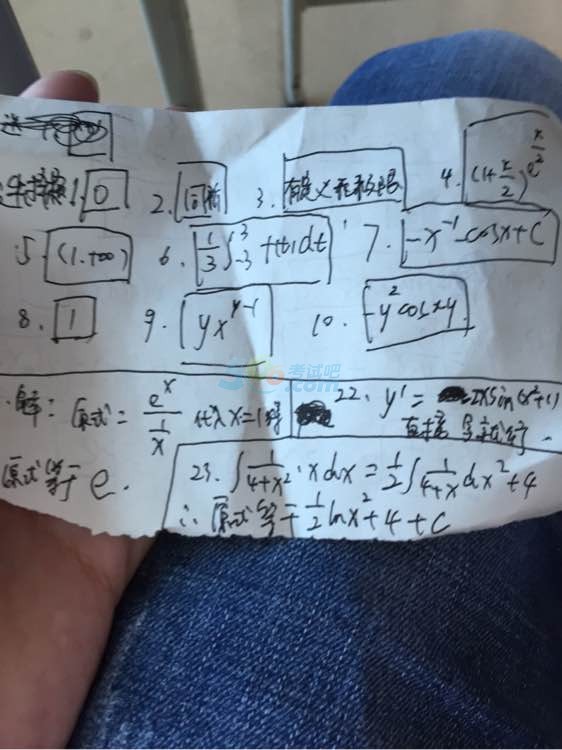 选择题 1. 0 2. 同前 3. 有定义有极限 4. (1+x/2)e^(x/2)
5. (1.+∞) 6. 1/3∫_{-3}^{3} f(t)dt 7. -x^{-1}-cosx+C
8. 1 9. yx^{y-1} 10. -y²cosxy
考试吧
.com
解: 原式= e^x/(1/x) 代入x=1得
原式等于e.
22. y'= -2xsin(x²+1)
直接 导就行.
23. ∫1/(4+x²)·xdx=1/2∫1/(4+x)dx²+4
∴原式等于1/2lnx²+4+C